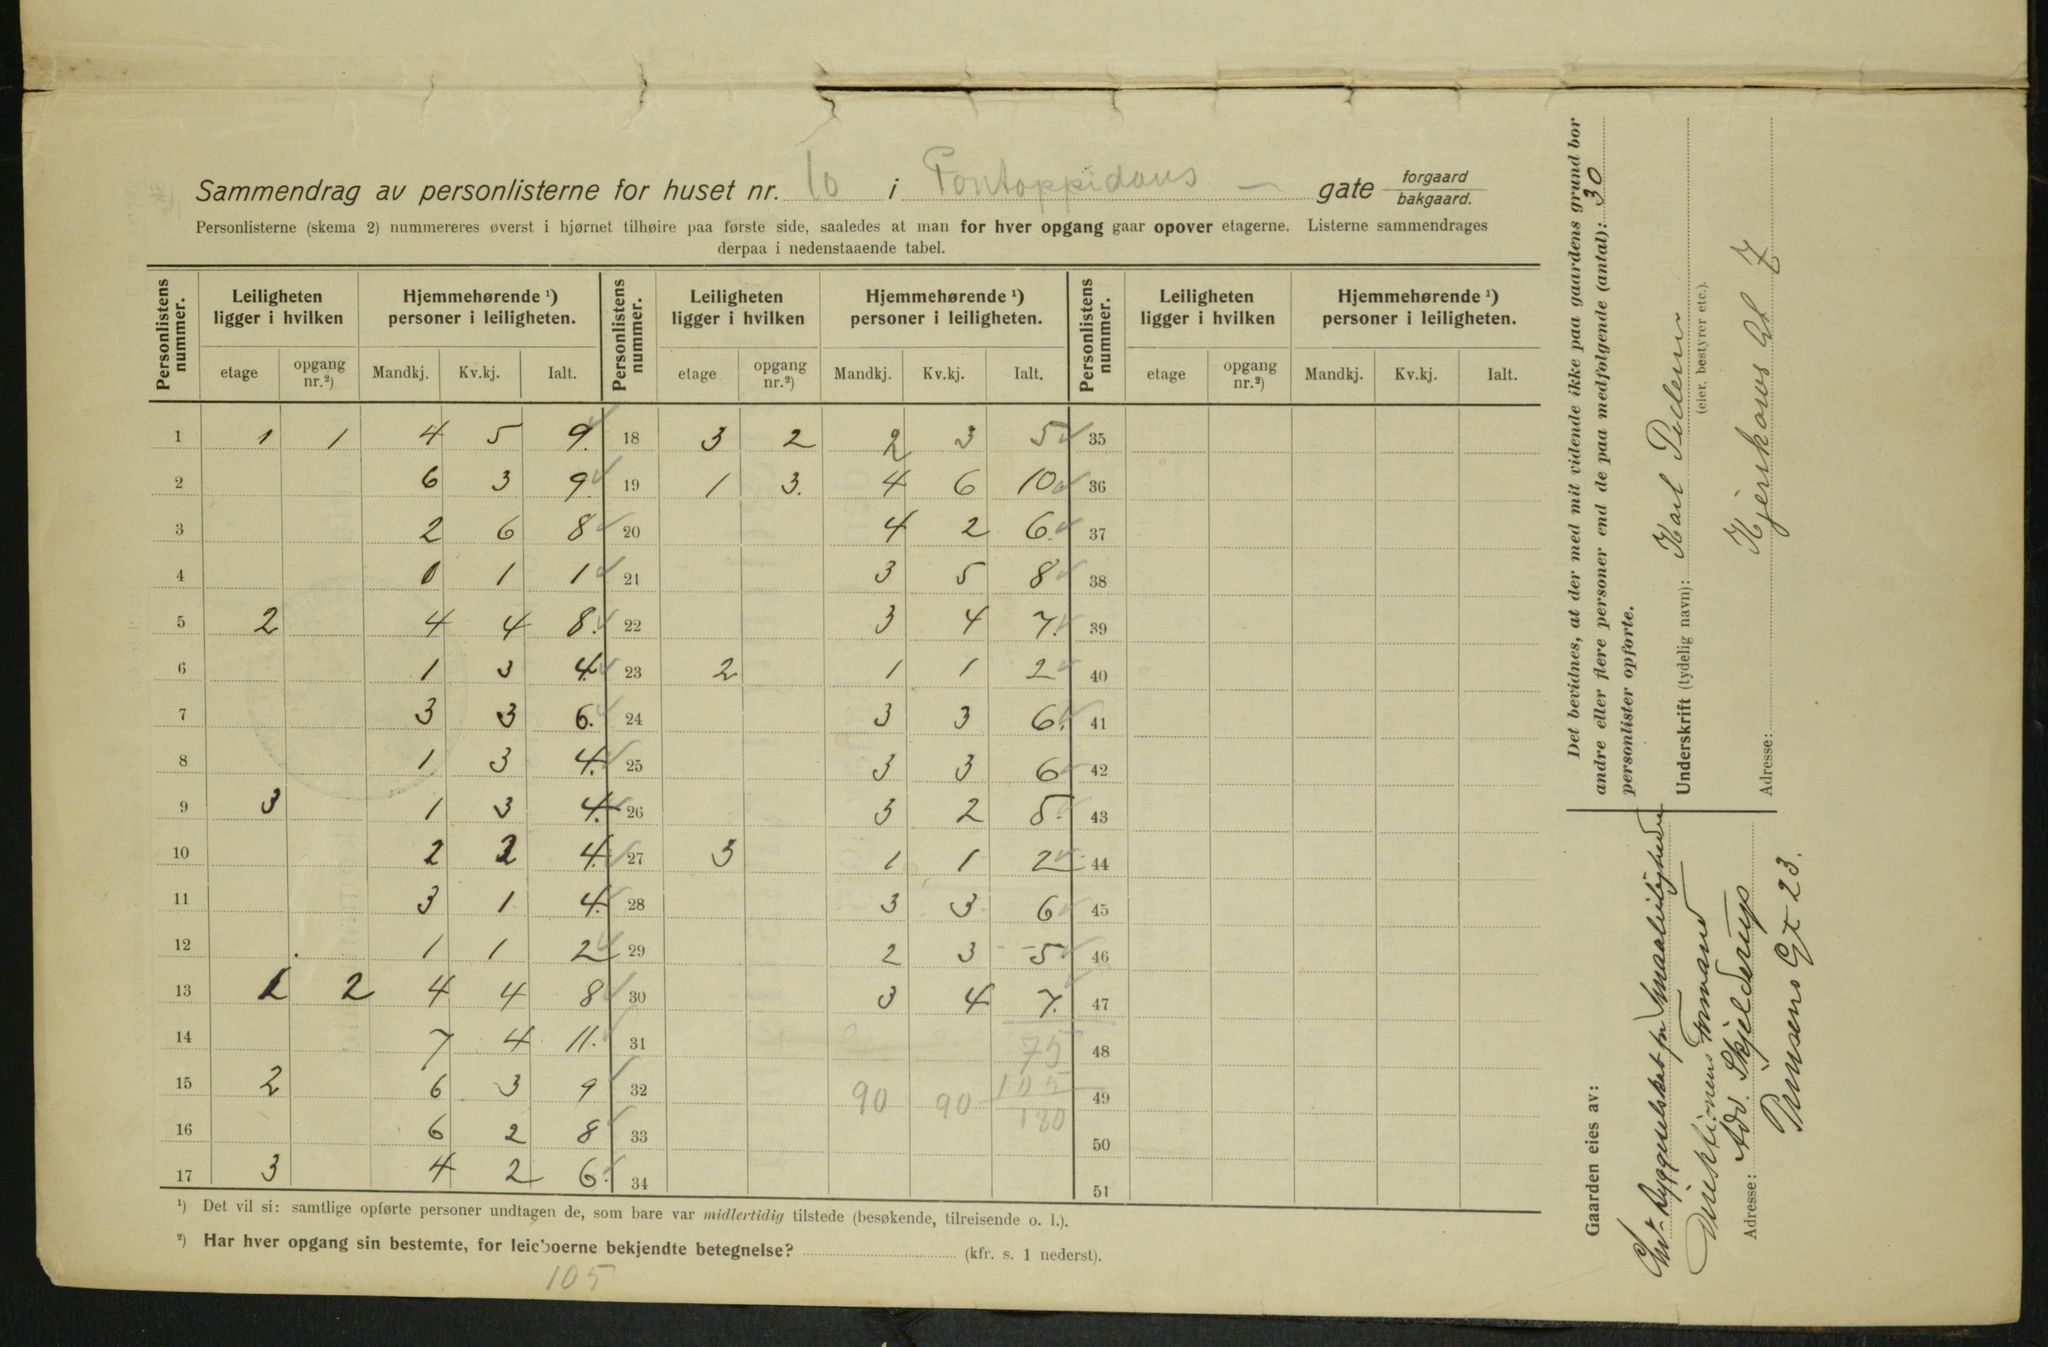 Sammendrag av personlisterne for huset nr. 10 i Pontoppidans — gate forgaard bakgaard.
Personlisterne (skema 2) nummereres øverst i hjørnet tilhøire paa første side, saaledes at man for hver opgang gaar opover etagerne. Listerne sammendrages
derpaa i nedenstaaende tabel.
Personlistens nummer. Leiligheten ligger i hvilken Hjemmehørende ¹) personer i leiligheten. Personlistens nummer. Leiligheten ligger i hvilken Hjemmehørende ¹) personer i leiligheten. Personlistens nummer. Leiligheten ligger i hvilken Hjemmehørende ¹) personer i leiligheten.
etage opgang nr.²) Mandkj. Kv.kj. Ialt. etage opgang nr.²) Mandkj. Kv.kj. Ialt. etage opgang nr.²) Mandkj. Kv.kj. Ialt.
1 1 1 4 5 9. 18 3 2 2 3 5 35
2 6 3 9. 19 1 3. 4 6 10 36
3 2 6 8 20 4 2 6. 37
4 0 1 1 21 3 5 8 38
5 2 4 4 8. 22 3 4 7. 39
6 1 3 4. 23 2 1 1 2 40
7 3 3 6. 24 3 3 6. 41
8 1 3 4. 25 3 3 6 42
9 3 1 3 4. 26 3 2 5. 43
10 2 2 4. 27 3 1 1 2 44
11 3 1 4. 28 3 3 6 45
12 1 1 2 29 2 3 5 46
13 1 2 4 4 8 30 3 4 7. 47
14 7 4 11. 31 75 48
15 2 6 3 9 32 90 90 105 49
16 6 2 8 33 180 50
17 3 4 2 6. 34 51
¹) Det vil si: samtlige opførte personer undtagen de, som bare var midlertidig tilstede (besøkende, tilreisende o. l.).
²) Har hver opgang sin bestemte, for leieboerne bekjendte betegnelse? (kfr. s. 1 nederst).
105
Det bevidnes, at der med mit vidende ikke paa gaardens grund bor
andre eller flere personer end de paa medfølgende (antal): 30
personlister opførte.
Underskrift (tydelig navn): Karl Pedersen
(eier, bestyrer etc.).
Adresse: Hjerkous Gt 7
Gaarden eies av:
Byggeselskapet for Smaaleiligheder
Direktionens Formand
Adresse: Adv. Skjelderup
Gt 23.